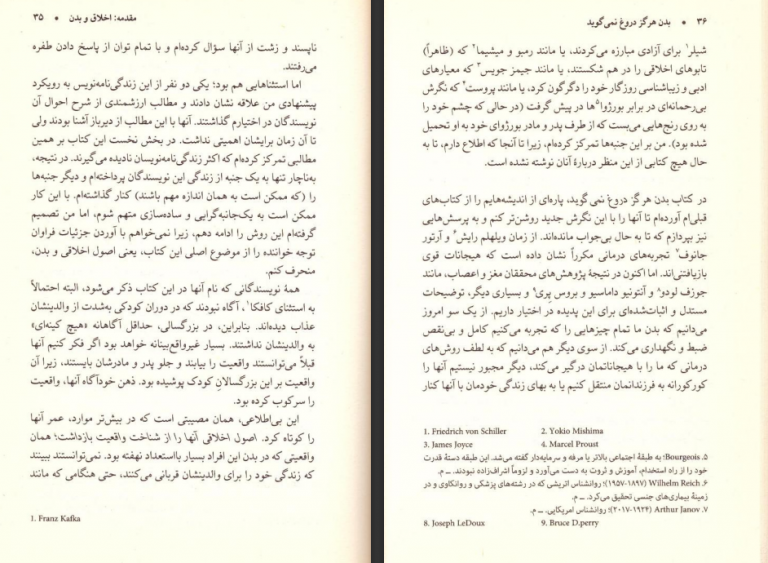 مقدمه: اخلاق و بدن • ۳۵
ناپسند و زشت از آنها سؤال کرده‌ام و با تمام توان از پاسخ دادن طفره
می‌رفتند.
اما استثناهایی هم بود؛ یکی دو نفر از این زندگی‌نامه‌نویس به رویکرد
پیشنهادی من علاقه نشان دادند و مطالب ارزشمندی از شرح احوال آن
نویسندگان در اختیارم گذاشتند. آنها با این مطالب از دیرباز آشنا بودند ولی
تا آن زمان برایشان اهمیتی نداشت. در بخش نخست این کتاب بر همین
مطالبی تمرکز کرده‌ام که اکثر زندگی‌نامه‌نویسان نادیده می‌گیرند. در نتیجه،
به‌ناچار تنها به یک جنبه از زندگی این نویسندگان پرداخته‌ام و دیگر جنبه‌ها
را (که ممکن است به همان اندازه مهم باشند) کنار گذاشته‌ام. با این کار
ممکن است به یک‌جانبه‌گرایی و ساده‌سازی متهم شوم، اما من تصمیم
گرفته‌ام این روش را ادامه دهم، زیرا نمی‌خواهم با آوردن جزئیات فراوان
توجه خواننده را از موضوع اصلی این کتاب، یعنی اصول اخلاقی و بدن،
منحرف کنم.
همهٔ نویسندگانی که نام آنها در این کتاب ذکر می‌شود، البته احتمالاً
به استثنای کافکا۱، آگاه نبودند که در دوران کودکی به‌شدت از والدینشان
عذاب دیده‌اند. بنابراین، در بزرگسالی، حداقل آگاهانه «هیچ کینه‌ای»
به والدینشان نداشتند. بسیار غیرواقع‌بینانه خواهد بود اگر فکر کنیم آنها
قبلاً می‌توانستند واقعیت را بیابند و جلو پدر و مادرشان بایستند، زیرا آن
واقعیت بر این بزرگسالانِ کودک پوشیده بود. ذهن خودآگاه آنها، واقعیت
را سرکوب کرده بود.
این بی‌اطلاعی، همان مصیبتی است که در بیش‌تر موارد، عمر آنها
را کوتاه کرد. اصول اخلاقی آنها را از شناخت واقعیت بازداشت؛ همان
واقعیتی که در بدن این افراد بسیار بااستعداد نهفته بود. نمی‌توانستند ببینند
که زندگی خود را برای والدینشان قربانی می‌کنند، حتی هنگامی که مانند
1. Franz Kafka
۳۶ • بدن هرگز دروغ نمی‌گوید
شیلر۱ برای آزادی مبارزه می‌کردند، یا مانند رمبو و میشیما۲ که (ظاهراً)
تابوهای اخلاقی را در هم شکستند، یا مانند جیمز جویس۳ که معیارهای
ادبی و زیباشناسی روزگار خود را دگرگون کرد، یا مانند پروست۴ که نگرش
بی‌رحمانه‌ای در برابر بورژوا۵ها در پیش گرفت (در حالی که چشم خود را
به روی رنج‌هایی می‌بست که از طرف پدر و مادر بورژوای خود به او تحمیل
شده بود). من بر این جنبه‌ها تمرکز کرده‌ام، زیرا تا آنجا که اطلاع دارم، تا به
حال هیچ کتابی از این منظر دربارهٔ آنان نوشته نشده است.
در کتاب بدن هرگز دروغ نمی گوید، پاره‌ای از اندیشه‌هایم را از کتاب‌های
قبلی‌ام آورده‌ام تا آنها را با این نگرش جدید روشن‌تر کنم و به پرسش‌هایی
نیز بپردازم که تا به حال بی‌جواب مانده‌اند. از زمان ویلهلم رایش۶ و آرتور
جانوف۷ تجربه‌های درمانی مکرراً نشان داده است که هیجانات قوی
بازیافتنی‌اند. اما اکنون در نتیجهٔ پژوهش‌های محققان مغز و اعصاب، مانند
جوزف لودو۸ و آنتونیو داماسیو و بروس پری۹ و بسیاری دیگر، توضیحات
مستدل و اثبات‌شده‌ای برای این پدیده در اختیار داریم. از یک سو امروز
می‌دانیم که بدن ما تمام چیزهایی را که تجربه می‌کنیم کامل و بی‌نقص
ضبط و نگهداری می‌کند. از سوی دیگر هم می‌دانیم که به لطف روش‌های
درمانی که ما را با هیجاناتمان درگیر می‌کند، دیگر مجبور نیستیم آنها را
کورکورانه به فرزندانمان منتقل کنیم یا به بهای زندگی خودمان با آنها کنار
1. Friedrich von Schiller 2. Yokio Mishima
3. James Joyce 4. Marcel Proust
۵. Bourgeois؛ به طبقهٔ اجتماعی بالاتر یا مرفه و سرمایه‌دار گفته می‌شد. این طبقه دستهٔ قدرت
خود را از راه استخدام، آموزش و ثروت به دست می‌آورد و لزوماً اشراف‌زاده نبودند. ــ م.
۶. Wilhelm Reich (۱۸۹۷-۱۹۵۷)؛ روانشناس اتریشی که در رشته‌های پزشکی و روانکاوی و در
زمینهٔ بیماری‌های جنسی تحقیق می‌کرد. ــ م.
۷. Arthur Janov (۱۹۲۴-۲۰۱۷)؛ روانشناس امریکایی. ــ م.
8. Joseph LeDoux 9. Bruce D.perry